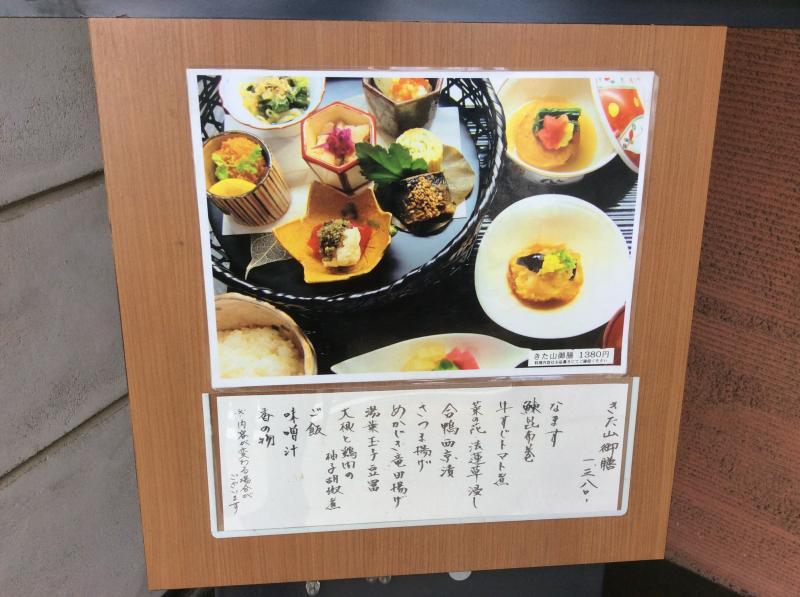 きた山御膳 1380円
きた山御膳
一三八〇.
なます
鰊昆布巻
牛すじトマト煮
菜の花 法蓮草浸し
合鴨西京漬
さつま揚げ
めかじき竜田揚げ
湯葉玉子豆冨
大根と鶏肉の
柚子胡椒煮
ご飯
味噌汁
香の物
※内容が変わる場合が
ございます